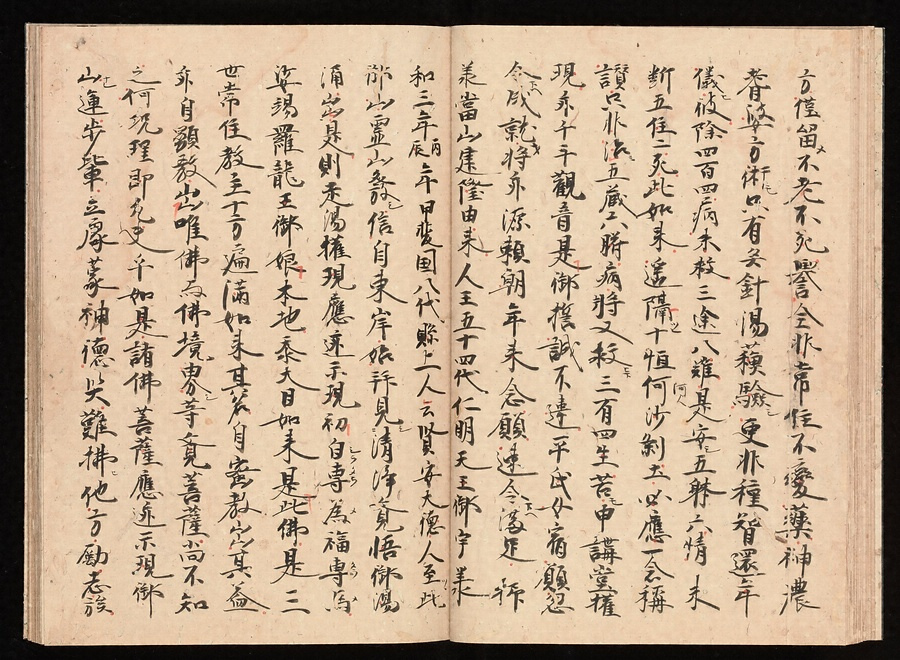 方僅留不老不死誉全非常住不變藥神農
耆婆方術只有灸針湯薬驗更非種智還年
儀彼除四百四病未救三途八難是安五躰六情未
断五住二死此如来遥隔十恒何沙刹土必應一念稱
讃只非治五蔵六腑病将又救三百四生苦申講堂權
現亦千手觀音是御誓誠不違平氏分宿願忽
令成就将亦源頼朝年来念願速令滿足
當山建隆由来人王五十四代仁明天王御宇羕
和三年丙辰年甲斐国八代縣上一人云賢安大德人至此
山靈山發信自東岸始拝見清浄覺悟御湯
涌出是則走湯權現應迹示現初自專為福專為
娑竭羅龍王御娘本地泰大日如来是此佛是三
世常住教主十方遍滿如来其名自密教出其益
亦自顯教出唯佛与佛境界等覺菩薩尚不知
之何況理即凡夫乎如是諸佛菩薩應迹示現御
山運歩輩立處蒙神德災難拂他方勵志族